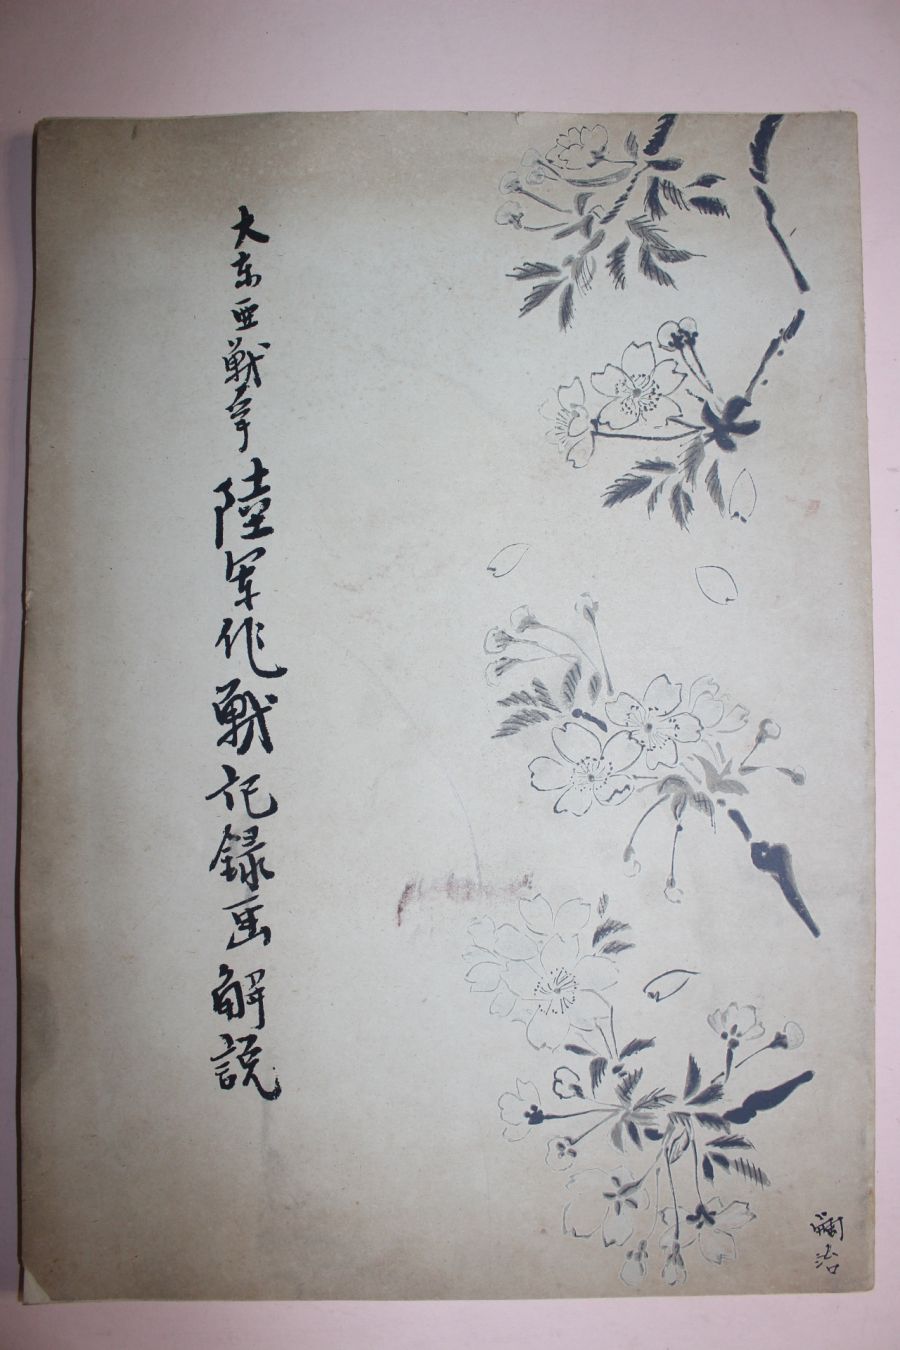 大东亜戦争 陸军作戦記録画解説
嗣治